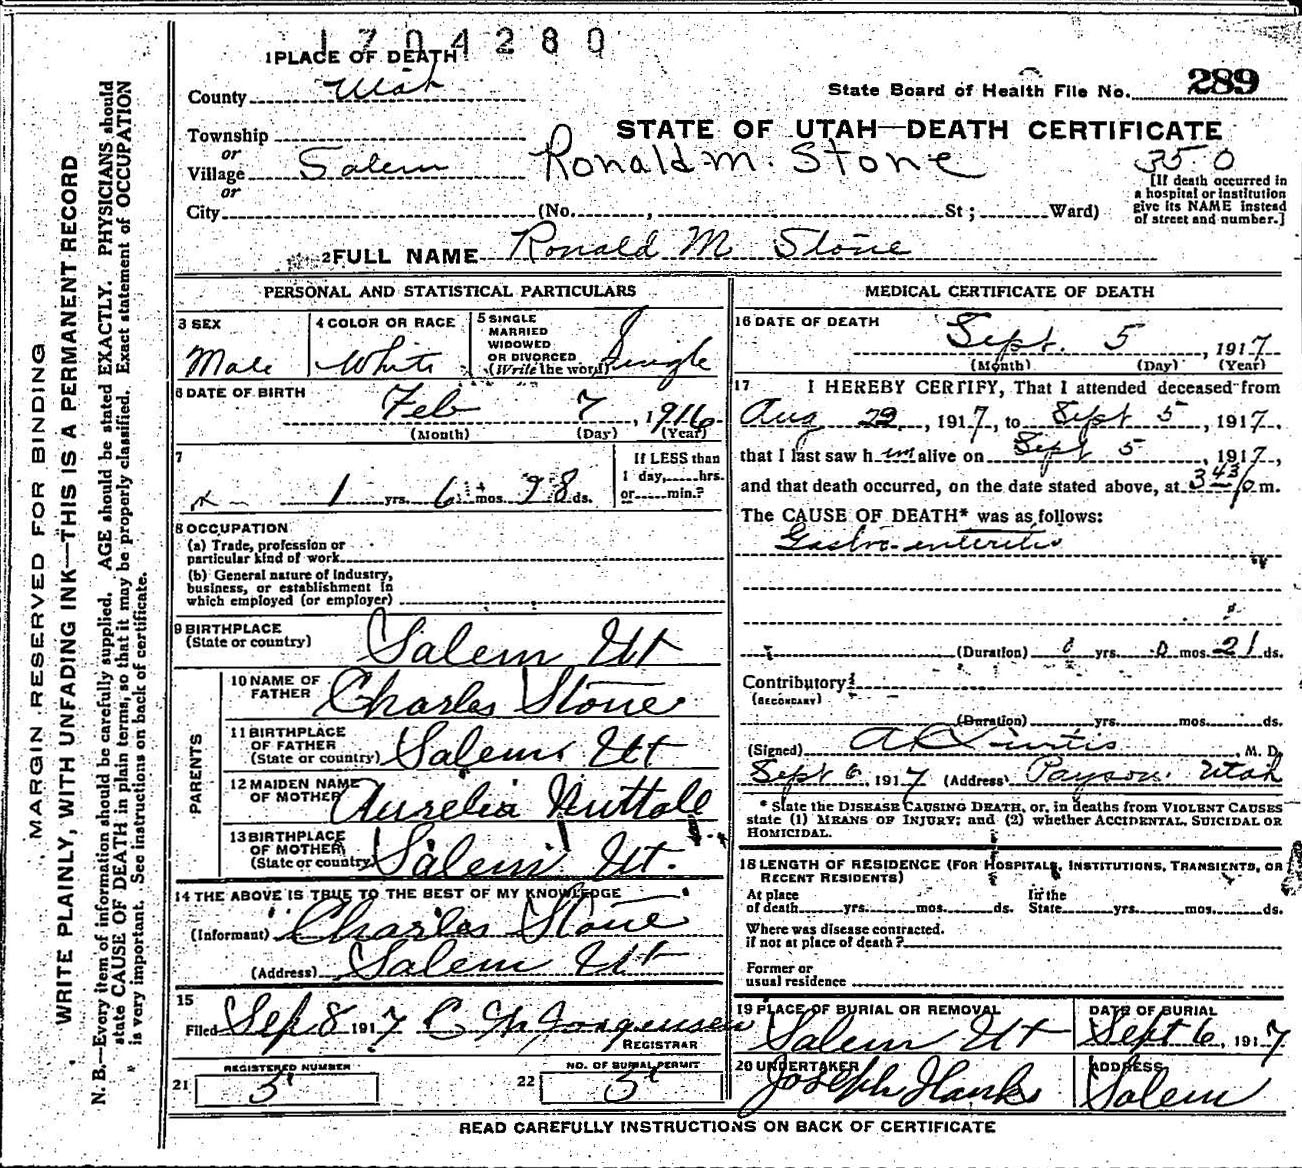 1704280
1 PLACE OF DEATH
County Utah
State Board of Health File No. 289
Township
STATE OF UTAH—DEATH CERTIFICATE
or
Village Salem Ronald M. Stone 35 0
or
[If death occurred in
a hospital or institution
give its NAME instead
of street and number.]
City (No. , St ; Ward)
2 FULL NAME Ronald M Stone
PERSONAL AND STATISTICAL PARTICULARS
3 SEX Male
4 COLOR OR RACE White
5 SINGLE
MARRIED
WIDOWED
OR DIVORCED
(Write the word) Single
6 DATE OF BIRTH Feb 7, 1916
(Month) (Day) (Year)
7
1 yrs. 6 mos. 28 ds.
If LESS than
1 day, hrs.
or min.?
8 OCCUPATION
(a) Trade, profession or
particular kind of work
(b) General nature of Industry,
business, or establishment in
which employed (or employer)
9 BIRTHPLACE
(State or country) Salem Ut
PARENTS
10 NAME OF
FATHER Charles Stone
11 BIRTHPLACE
OF FATHER
(State or country) Salem Ut
12 MAIDEN NAME
OF MOTHER Aurelia Nuttall
13 BIRTHPLACE
OF MOTHER
(State or country) Salem Ut.
14 THE ABOVE IS TRUE TO THE BEST OF MY KNOWLEDGE
(Informant) Charles Stone
(Address) Salem Ut
15
Filed Sep 8 1917 Jorgensen
REGISTRAR
21 REGISTERED NUMBER 5
22 NO. OF BURIAL PERMIT 5
MEDICAL CERTIFICATE OF DEATH
16 DATE OF DEATH
Sept. 5, 1917
(Month) (Day) (Year)
17 I HEREBY CERTIFY, That I attended deceased from
Aug 29, 1917, to Sept 5, 1917,
that I last saw him alive on Sept 5, 1917,
and that death occurred, on the date stated above, at 3 43 p m.
The CAUSE OF DEATH* was as follows:
Gastro-enteritis
(Duration) 0 yrs. 0 mos. 21 ds.
Contributory
(SECONDARY)
(Duration) yrs. mos. ds.
(Signed) Curtis, M. D.
Sept 6, 1917 (Address) Payson Utah
* State the DISEASE CAUSING DEATH, or, in deaths from VIOLENT CAUSES
state (1) MEANS OF INJURY; and (2) whether ACCIDENTAL, SUICIDAL OR
HOMICIDAL.
18 LENGTH OF RESIDENCE (FOR HOSPITALS, INSTITUTIONS, TRANSIENTS, OR
RECENT RESIDENTS)
At place
of death yrs. mos. ds.
In the
State yrs. mos. ds.
Where was disease contracted.
if not at place of death?
Former or
usual residence
19 PLACE OF BURIAL OR REMOVAL
Salem Ut
DATE OF BURIAL
Sept 6, 1917
20 UNDERTAKER
Joseph Hanks
ADDRESS
Salem
READ CAREFULLY INSTRUCTIONS ON BACK OF CERTIFICATE
MARGIN RESERVED FOR BINDING
WRITE PLAINLY, WITH UNFADING INK—THIS IS A PERMANENT RECORD
N. B.—Every item of information should be carefully supplied. AGE should be stated EXACTLY. PHYSICIANS should
state CAUSE OF DEATH in plain terms, so that it may be properly classified. Exact statement of OCCUPATION
is very important. See instructions on back of certificate.